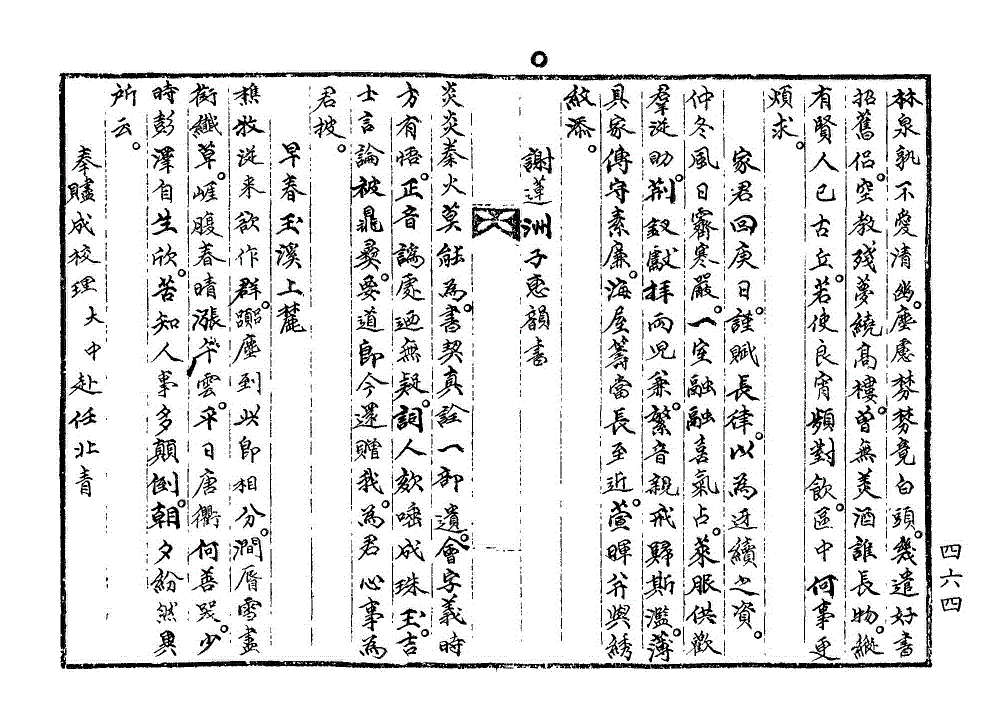 林泉孰不愛清幽。塵慮棼棼竟白頭。幾遣好書
招舊侶。空教殘夢繞高樓。曾無美酒誰長物。縱
有賢人已古丘。若使良宵頻對飮。區中何事更
煩求。
家君回庚日。謹賦長律。以爲迓續之資。
仲冬風日霽寒嚴。一室融融喜氣占。萊服供歡
羣從助。荊釵獻拜両兒兼。繁音親戒歸斯濫。薄
具家傳守素廉。海屋籌當長至近。萱暉幷與綉
紋添。
謝蓮洲子惠韻書
炎炎秦火莫能爲。書契眞詮一部遺。會字義時
方有悟。正音譌處迺無疑。詞人欬唾成珠玉。吉
士言論被鼎彛。要道卽今還贈我。爲君心事爲
君披。
早春玉溪上麓
樵牧從來欲作群。躡塵到此卽相分。澗脣雪盡
銜纖草。崕腹春晴漲午雲。平日唐衢何善哭。少
時彭澤自生欣。苦知人事多顚倒。朝夕紛然異
所云。
奉贐成校理大中赴任北靑
四六四